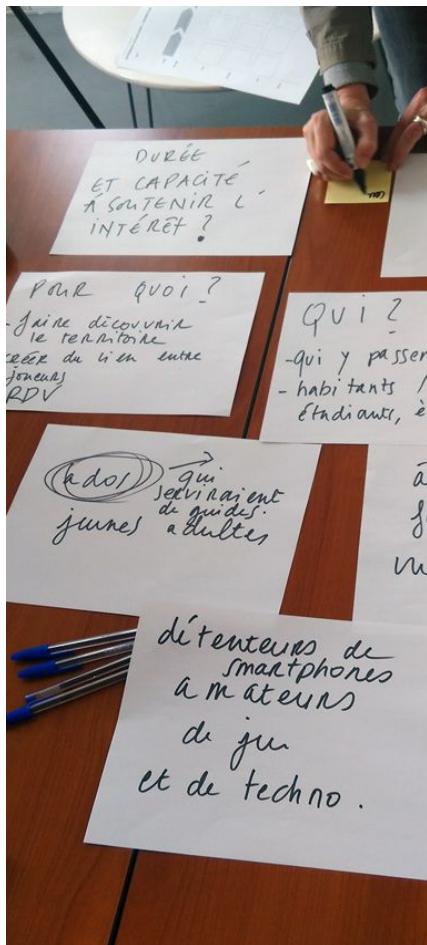 DURÉE
ET CAPACITÉ
À SOUTENIR L'
INTÉRÊT ?
POUR QUOI ?
- faire découvrir
le territoire
créer du lien entre
joueurs
RDV
QUI ?
- qui y passen
- habitants /
étudiants, é
ados → qui
serviraient
de guides.
jeunes adultes
à
détenteurs de
smartphones
amateurs
de jeu
et de techno.